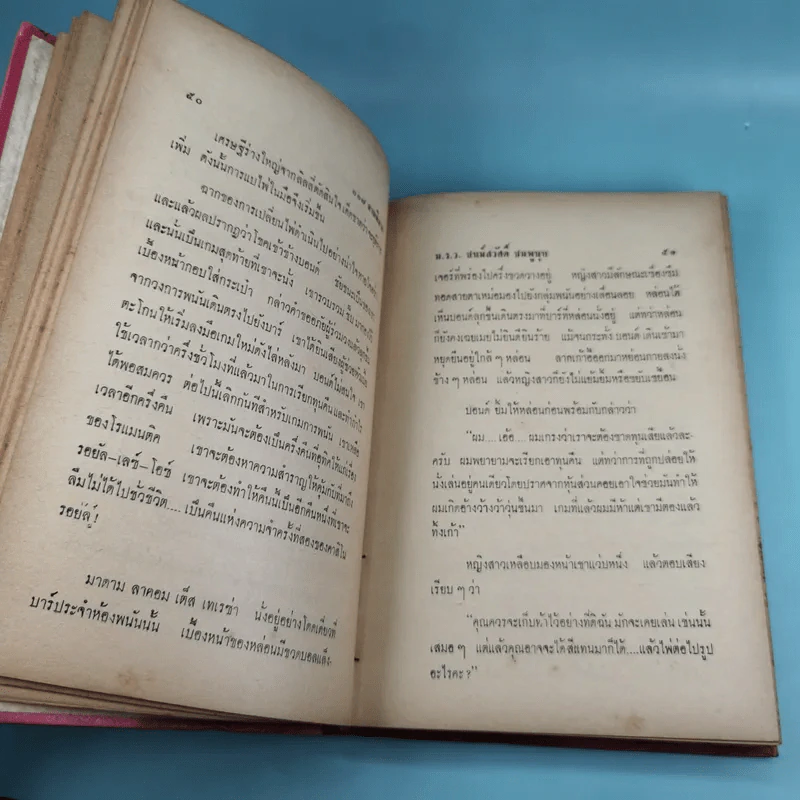 ๕๐
เศรษฐีร่างใหญ่จากลิลล์ตัดสินใจ
เพิ่ม ดังนั้นการแบไพ่ในมือจึงเริ่มขึ้น
ฉากของการเปลี่ยนไพ่ดำเนินไปอย่าง
และแล้วผลปรากฏว่าโชคเข้าข้างบอนด์
และนั่นเป็นเกมสุดท้ายที่เขาจะนั่ง เขารวบรวม
เบื้องหน้ากอบใส่กระเป๋า กล่าวคำขออภัยผู้ร่วมวง
จากวงการพนันเดินตรงไปยังบาร์ เขาได้ยินเสียง
ตะโกนให้เริ่มลงมือเกมใหม่ดังไล่หลังมา บอนด์ไม่สนใจ เขา
ใช้เวลากว่าครึ่งชั่วโมงที่แล้วมาในการเรียกทุนคืน และกำไร
ได้พอสมควร ต่อไปนี้เลิกกันทีสำหรับเกมการพนัน เขาเหลือ
เวลาอีกครึ่งคืน เพราะมันจะต้องเป็นครึ่งคืนที่อุทิศให้แก่เรื่อง
ของโรแมนติค เขาจะต้องหาความสำราญให้คุ้มกับที่มาถึง
รอยัล–เลซ–โอซ์ เขาจะต้องทำให้คืนนี้เป็นอีกคืนหนึ่งที่เขาจะ
ลืมไม่ได้ไปชั่วชีวิต.... เป็นคืนแห่งความจำครั้งที่สองของคาสิโน
รอยัล!
มาดาม ลาคอม เต็ส เทเรซ่า นั่งอยู่อย่างโดดเดี่ยวที่
บาร์ประจำห้องพนันนั้น เบื้องหน้าของหล่อนมีขวดบอลแล็ง-
ม.ร.ว. ชนม์สวัสดิ์ ชมพูนุช ๕๑
เจอร์ที่พร่องไปครึ่งขวดวางอยู่ หญิงสาวมีลักษณะเซื่องซึม
ทอดสายตาเหม่อมองไปยังกลุ่มพนันอย่างเลื่อนลอย หล่อนได้
เห็นบอนด์ลุกขึ้นเดินตรงมาที่บาร์ที่หล่อนนั่งอยู่ แต่ทว่าหล่อน
ก็ยังคงเฉยเมยไม่ยินดียินร้าย แม้จนกระทั่ง บอนด์ เดินเข้ามา
หยุดยืนอยู่ใกล้ ๆ หล่อน ลากเก้าอี้ออกมาหย่อนกายลงนั่ง
ข้าง ๆ หล่อน แล้วหญิงสาวก็ยังไม่แย้มยิ้มหรือขยับเขยื้อน
บอนด์ ยิ้มให้หล่อนก่อนพร้อมกับกล่าวว่า
“ผม.... เอ้อ.... ผมเกรงว่าเราจะต้องขาดทุนเสียแล้วละ-
ครับ ผมพยายามจะเรียกเอาทุนคืน แต่ทว่าการที่ถูกปล่อยให้
นั่งเล่นอยู่คนเดียวโดยปราศจากหุ้นส่วนคอยเอาใจช่วยมันทำให้
ผมเกิดอ้างว้างว้าวุ่นขึ้นมา เกมที่แล้วผมมีห้าแต่เขามีตองแล้ว
ทั้งเก้า”
หญิงสาวเหลือบมองหน้าเขาแว่บหนึ่ง แล้วตอบเสียง
เรียบ ๆ ว่า
“คุณควรจะเก็บห้าไว้อย่างที่ดิฉัน มักจะเคยเล่น เช่นนั้น
เสมอ ๆ แต่แล้วคุณอาจจะได้สี่แทนมาก็ได้....แล้วไพ่ต่อไปรูป
อะไรคะ ?”